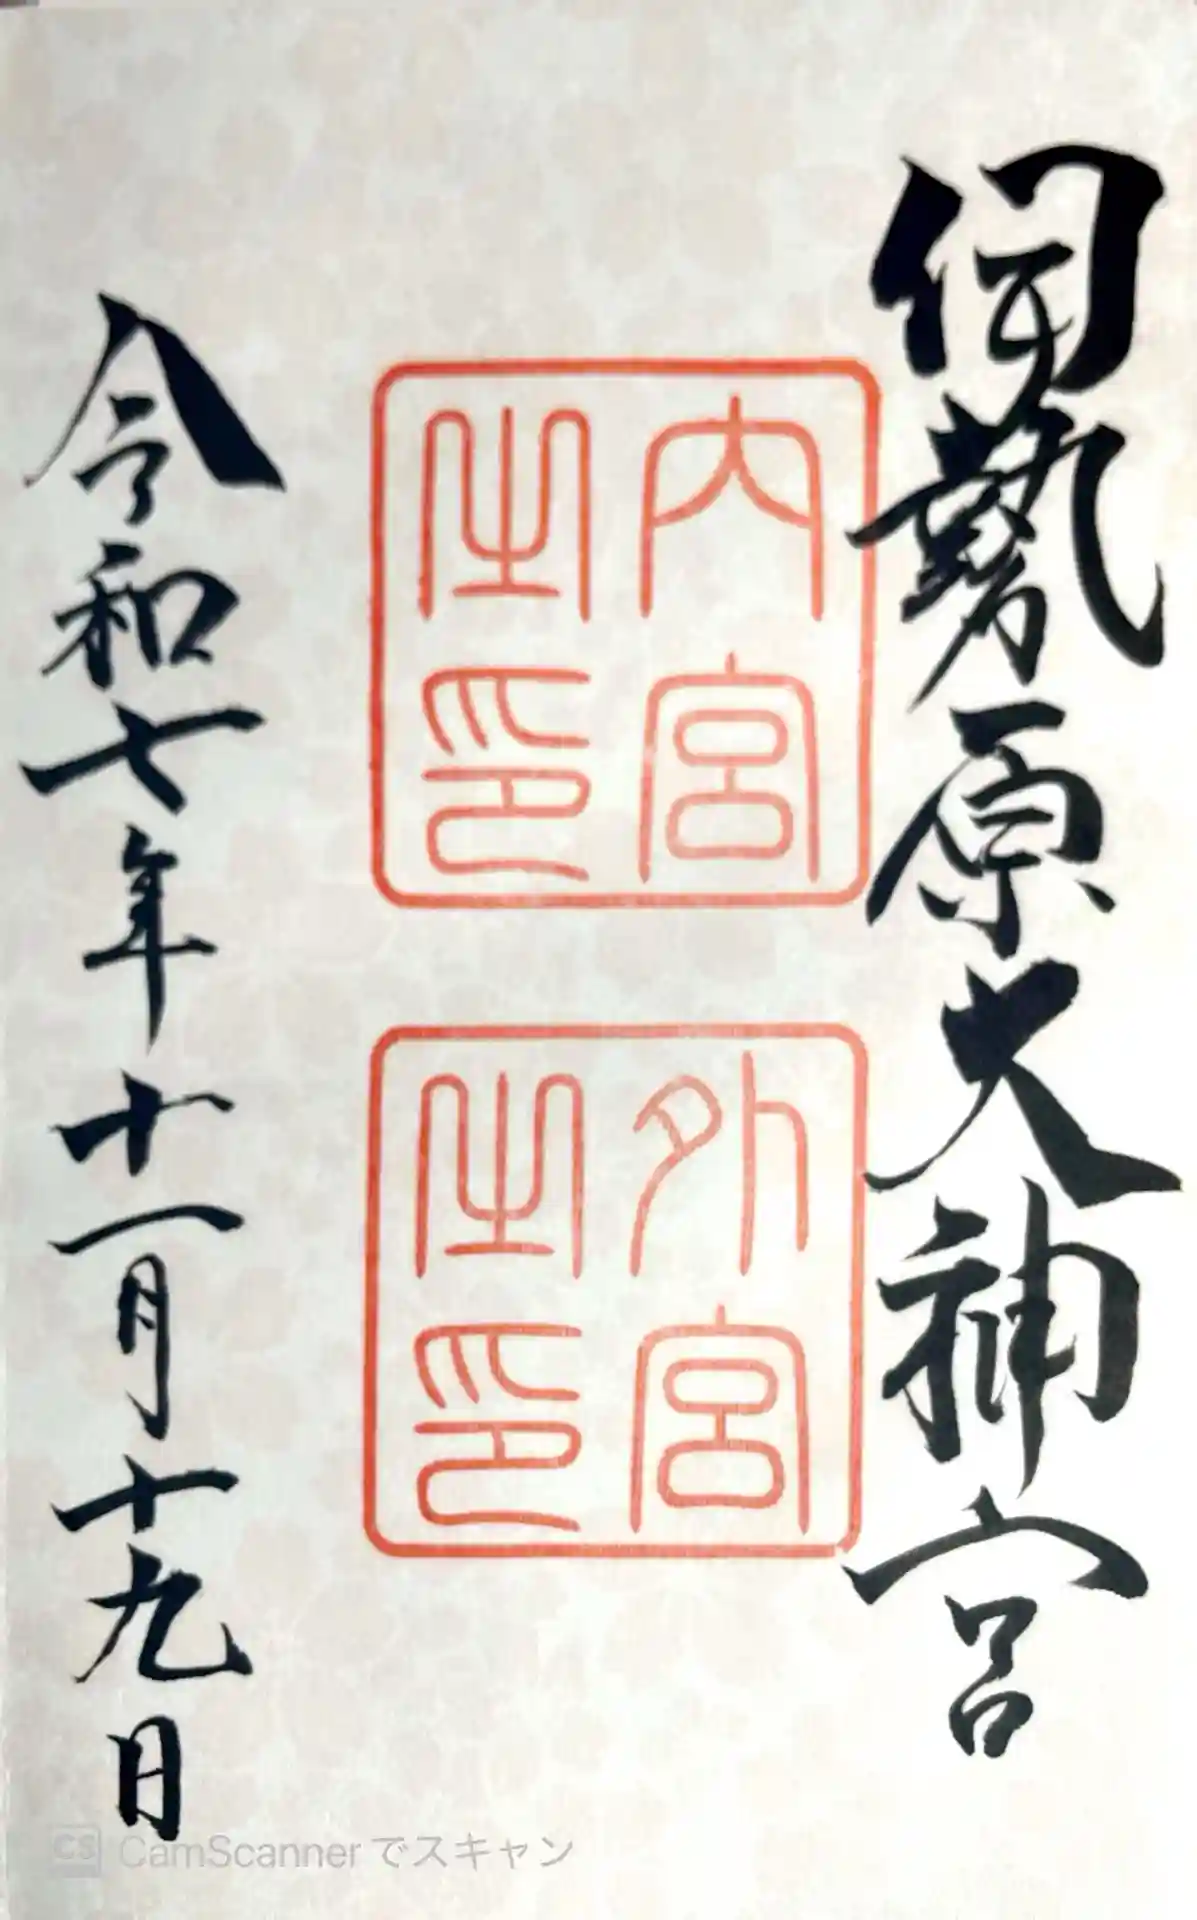 伊勢原大神宮
内宮
之印
外宮
之印
令和七年十一月十九日
CS CamScannerでスキャン